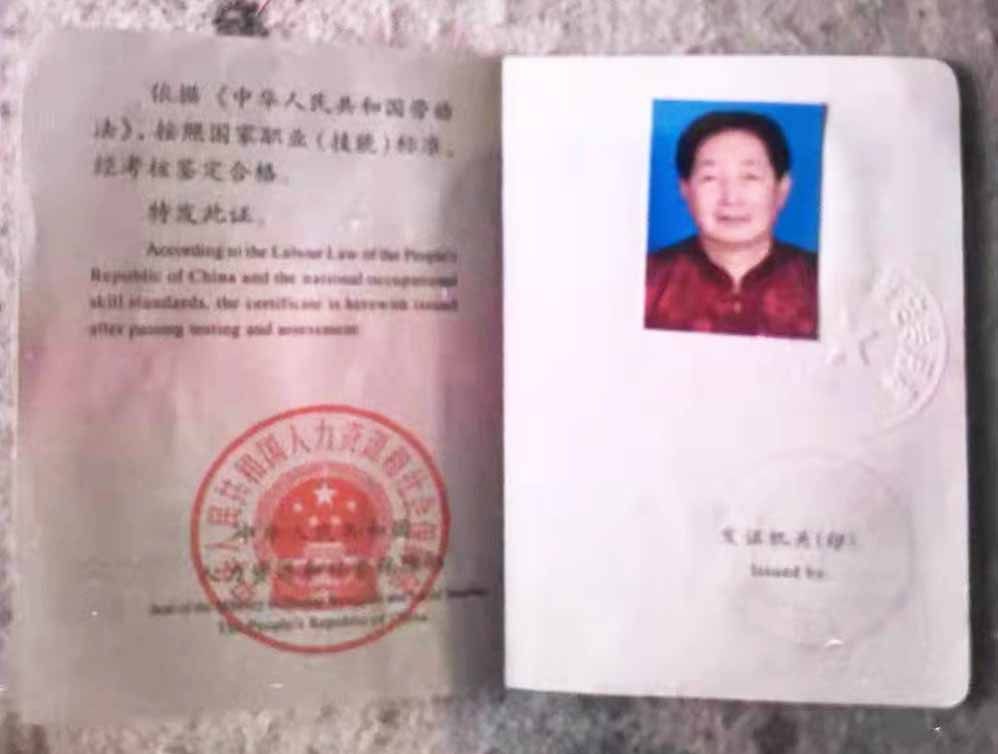 依据《中华人民共和国劳动
法》，按照国家职业（技能）标准，
经考核鉴定合格。
特发此证。
According to the Labour Law of the People's
Republic of China and the national occupational
skill standards, the certificate is herewith issued
after passing testing and assessment
中华人民共和国人力资源和社会保障部
中华人民共和国
人力资源和社会保障部
Seal of the Ministry of Human Resources and Social
The People's Republic of China
发证机关(印)
Issued by